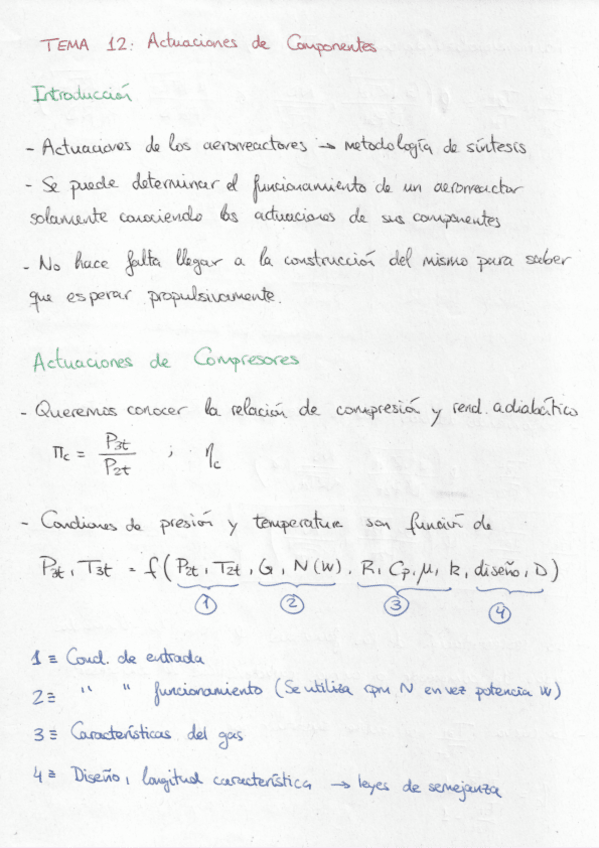 TEMA 12: Actuaciones de Componentes
Introducción
- Actuaciones de los aerorreactores → metodología de síntesis
- Se puede determinar el funcionamiento de un aerorreactor
solamente conociendo las actuaciones de sus componentes
- No hace falta llegar a la construcción del mismo para saber
que esperar propulsivamente.
Actuaciones de Compresores
- Queremos conocer la relación de compresión y rend. adiabático
Πc = P3t / P2t ; ηc
- Condiones de presión y temperatura son función de
P3t, T3t = f(P2t, T2t, G, N(W), R, Cp, μ, k, diseño, D)
1 2 3 4
1 ≡ Cond. de entrada
2 ≡ " " funcionamiento (Se utiliza rpm N en vez potencia W)
3 ≡ Características del gas
4 ≡ Diseño, longitud característica → leyes de semejanza